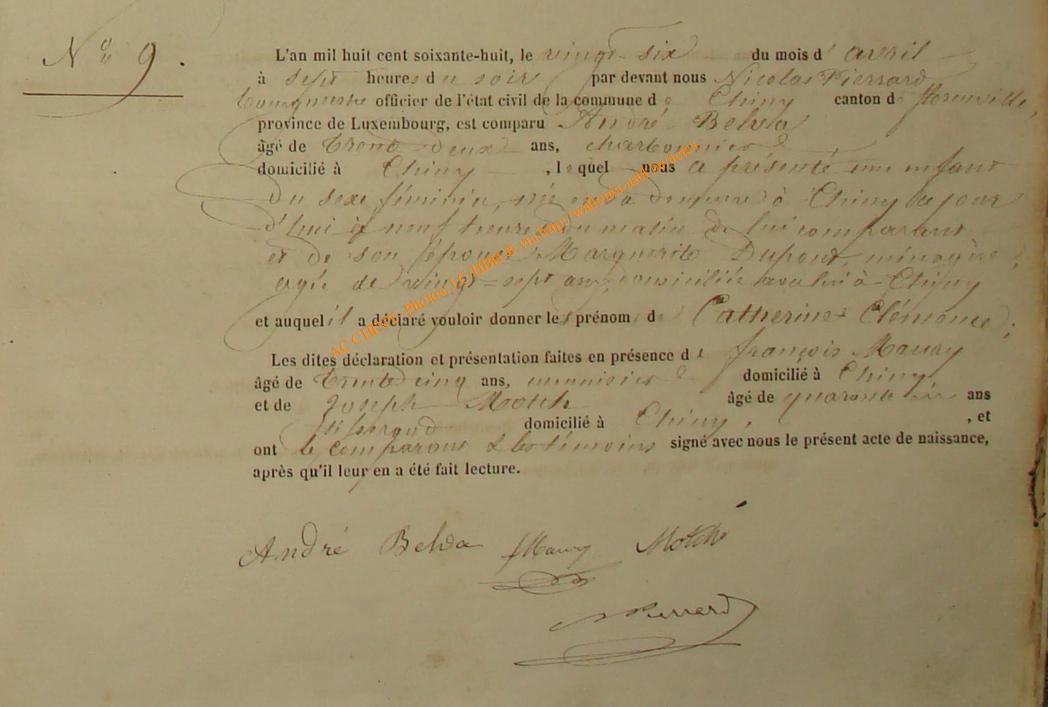 No 9.
L'an mil huit cent soixante-huit, le vingt six du mois d'avril
à sept heures du soir par devant nous Nicolas Pierrard
bourgmestre officier de l'état civil de la commune de Chiny canton de florenville,
province de Luxembourg, est comparu André Belva
âgé de trente deux ans, charbonnier,
domicilié à Chiny, lequel nous a présenté une enfant
du sexe féminin, née en sa demeure à Chiny ce jour
d'hui à neuf heures du matin de lui comparant
et de son épouse Marguerite Dupont, ménagère,
agée de vingt-sept ans, domiciliée avec lui à Chiny
et auquel il a déclaré vouloir donner les prénom de Catherine Clémence;
Les dites déclaration et présentation faites en présence de françois Maury
âgé de trente cinq ans, menuisier domicilié à Chiny
et de Joseph Motch âgé de quarante ans
domicilié à Chiny, , et
ont le comparant & les témoins signé avec nous le présent acte de naissance,
après qu'il leur en a été fait lecture.
André Belva fMaury Motch
NPierrard
ACCHIPS: Photos LCHIBER